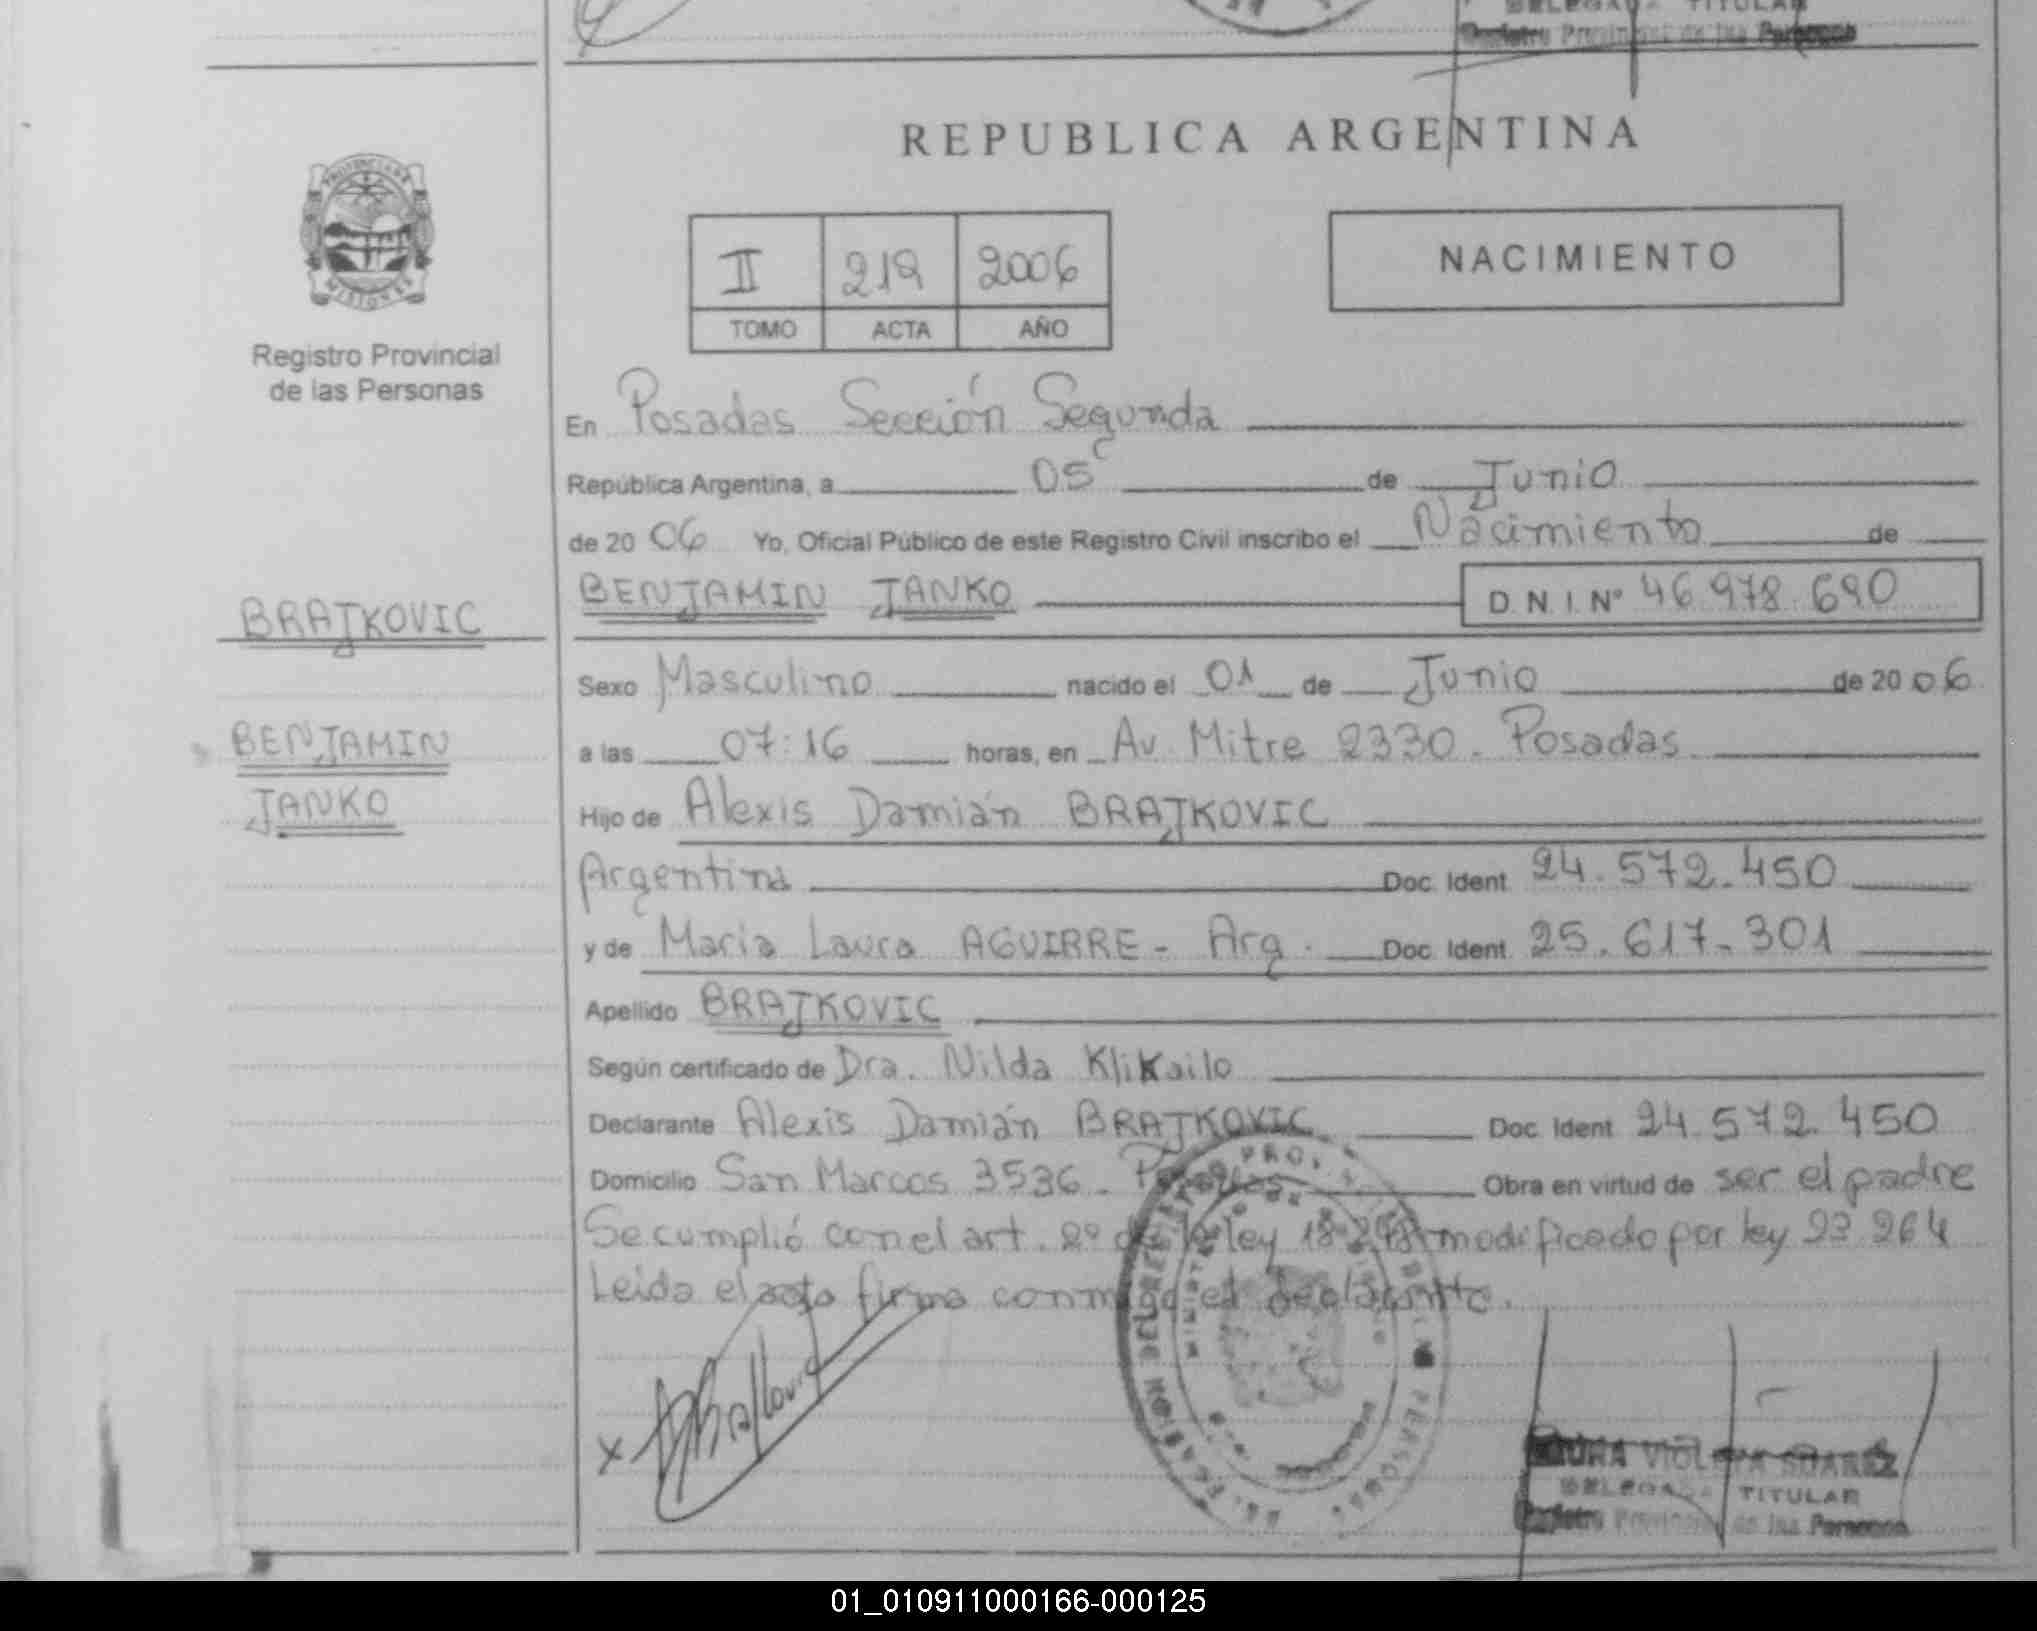 DELEGADA TITULAR
Registro Provincial de las Personas
REPUBLICA ARGENTINA
PROVINCIA DE
MISIONES
Registro Provincial
de las Personas
II 219 2006
TOMO ACTA AÑO
NACIMIENTO
En Posadas Sección Segunda
República Argentina, a 05 de Junio
de 2006 Yo, Oficial Público de este Registro Civil inscribo el Nacimiento de
BRAJKOVIC
BENJAMIN JANKO D.N.I. Nº 46.978.690
Sexo Masculino nacido el 01 de Junio de 2006
BENJAMIN
a las 07:16 horas, en Av. Mitre 2330. Posadas
JANKO
Hijo de Alexis Damián BRAJKOVIC
Argentina Doc. Ident. 24.572.450
y de Maria Laura AGUIRRE - Arg. Doc. Ident. 25.617.301
Apellido BRAJKOVIC
Según certificado de Dra. Nilda Klikailo
Declarante Alexis Damián BRAJKOVIC Doc. Ident. 24.572.450
Domicilio San Marcos 3536. Posadas Obra en virtud de ser el padre
Se cumplió con el art. 2º de la ley 18.248 modificado por ley 23.264
Leida el acta firma conmigo el declarante.
x
VIOLETA SUAREZ
DELEGADA TITULAR
Registro Provincial de las Personas
01_010911000166-000125